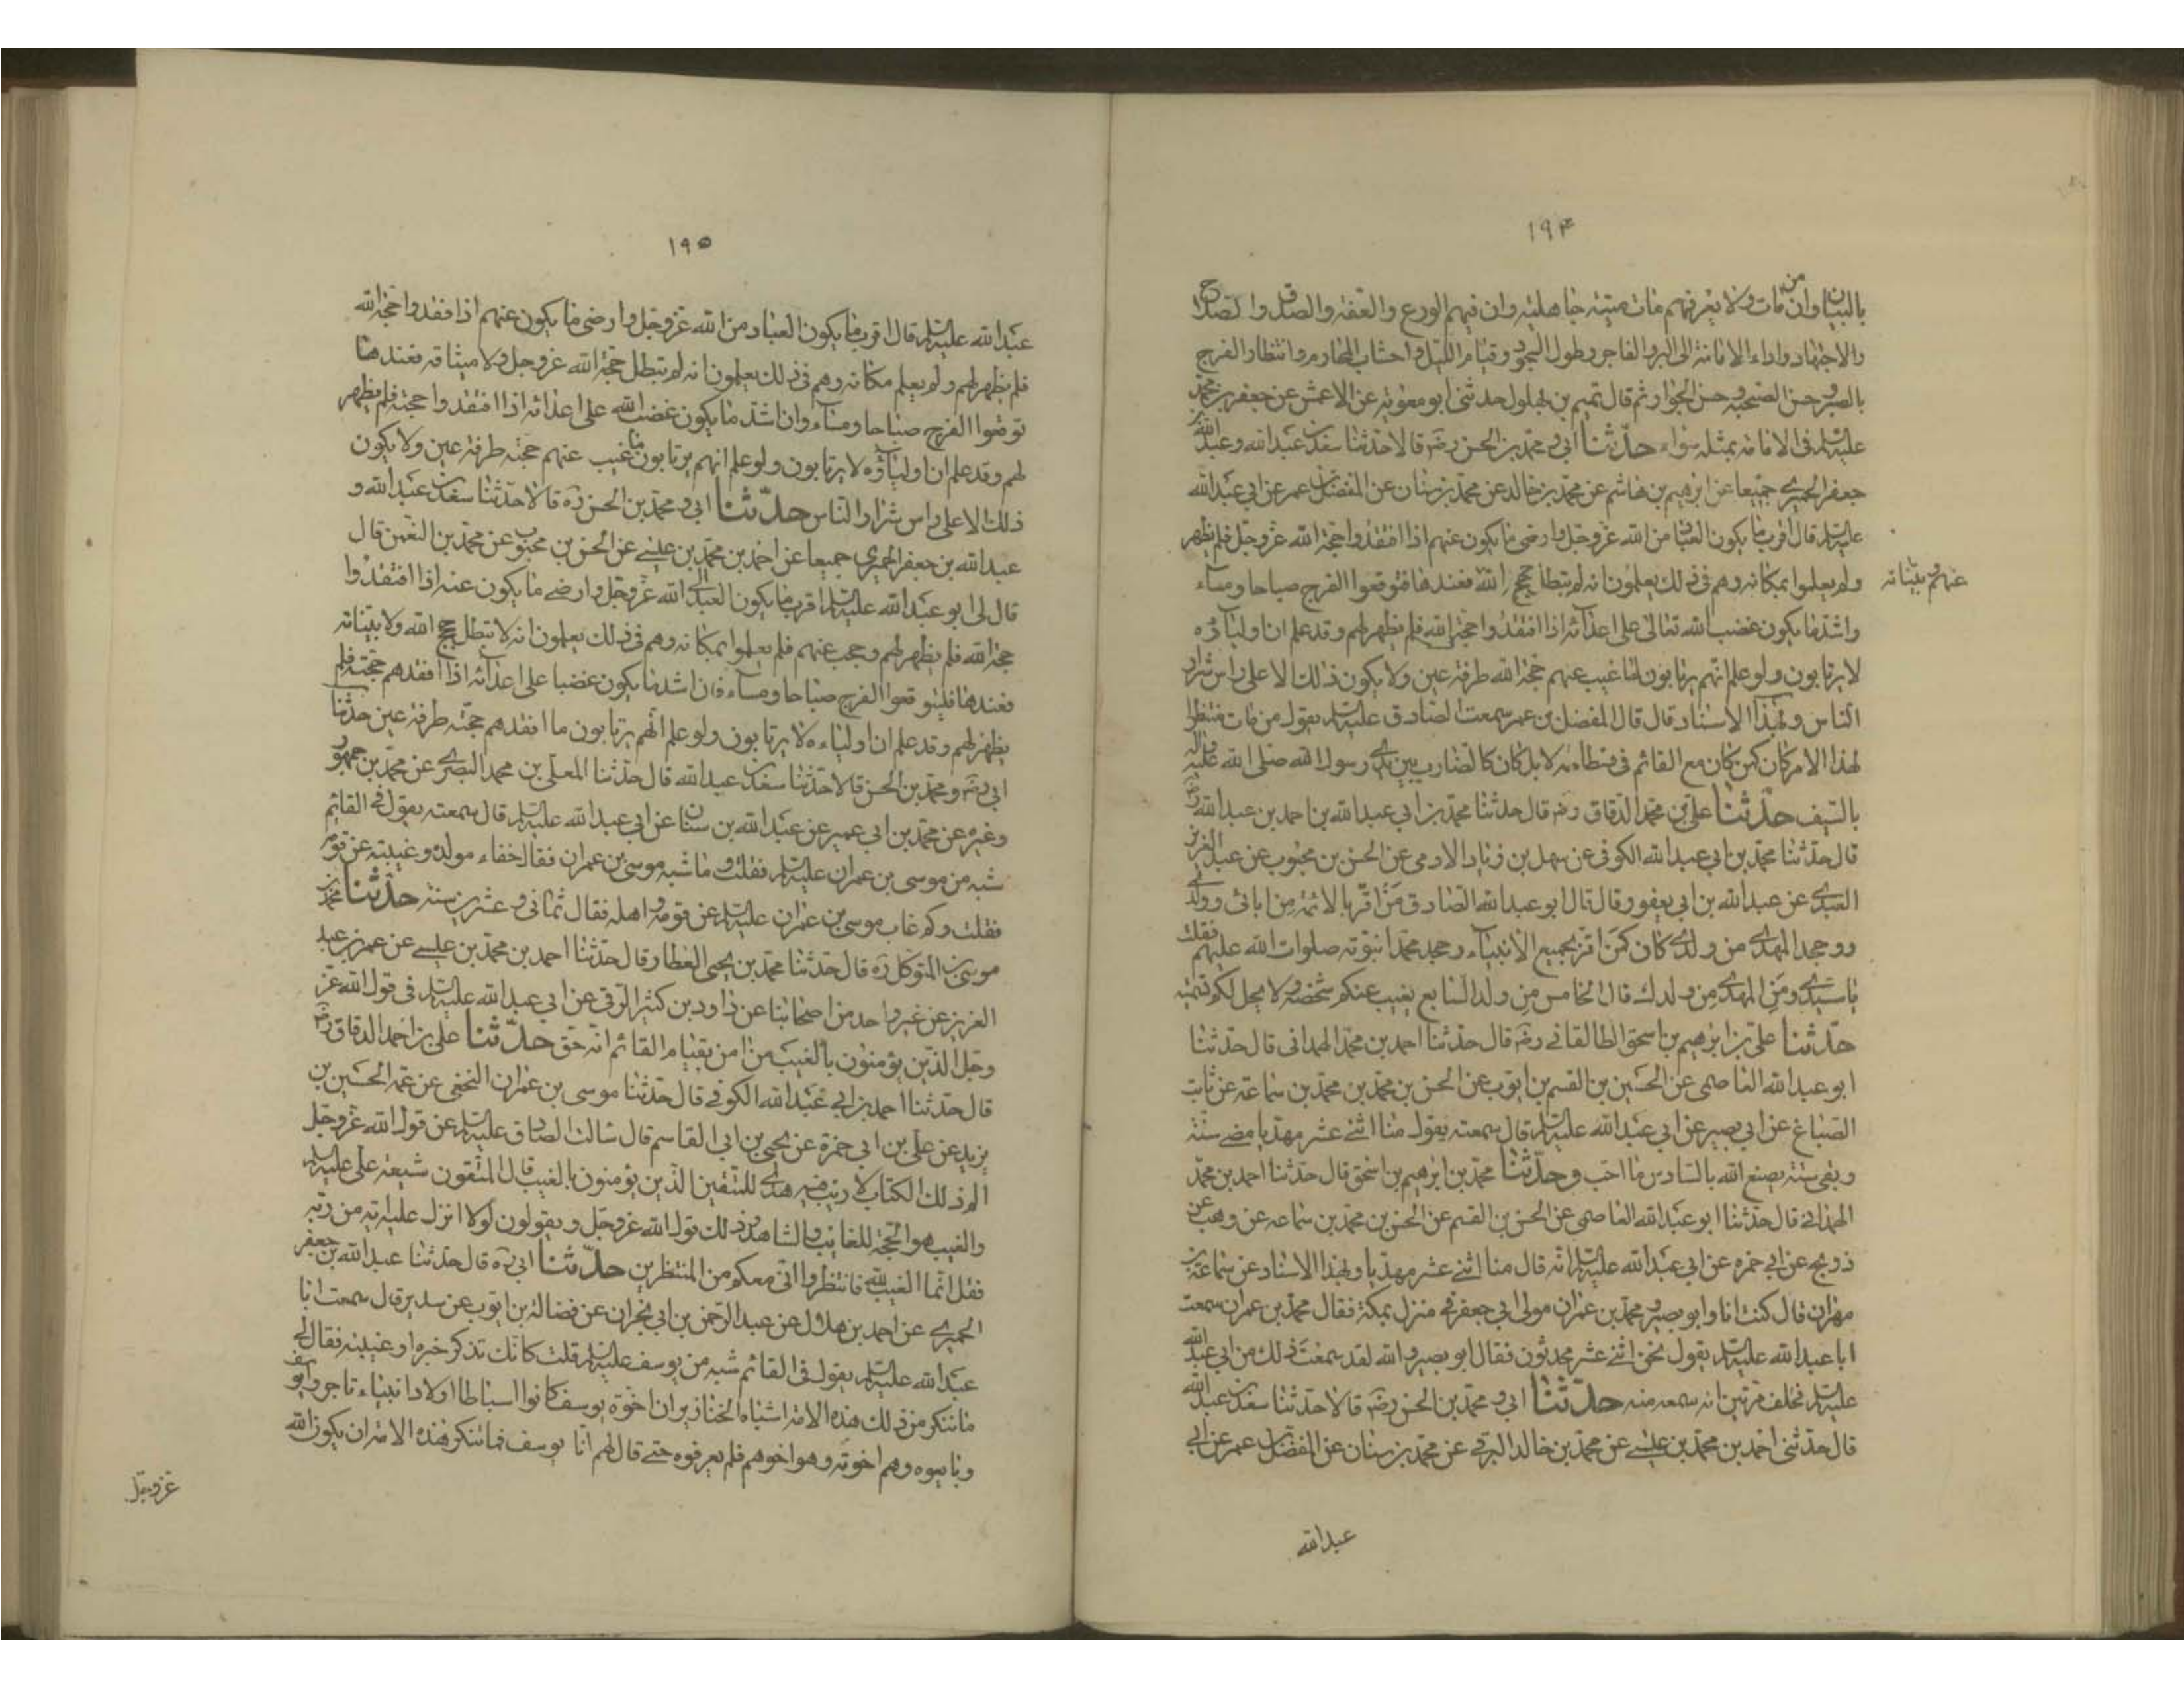 ١٩٤
بالبيان وان من مات ولا يعرفهم مات ميتة جاهلية وان فيهم الورع والعفة والصدق والصلاح
والاجتهاد واداء الامانة الى البر والفاجر وطول السجود وقيام الليل واجتناب المحارم وانتظار الفرج
بالصبر وحسن الصحبة وحسن الجوار ثم قال تميم بن بهلول حدثنى ابو معوية عن الاعمش عن جعفر بن محمد
عليه السلم فى الامامة بمثله سواء حدثنا ابى ومحمد بن الحسن رضه قالا حدثنا سعد بن عبد الله وعبد الله بن
جعفر الحميرى جميعا عن ابرهيم بن هاشم عن محمد بن خالد عن محمد بن سنان عن المفضل بن عمر عن ابى عبد الله
عليه السلم قال اقرب ما يكون العباد من الله عز وجل وارضى ما يكون عنهم اذا افتقدوا حجة الله عز وجل فلم يظهر
ولم يعلموا بمكانه وهم فى ذلك يعلمون انه لم تبطل حجج الله فعندها فتوقعوا الفرج صباحا ومساء
عنهم وبيناته
واشد ما يكون غضب الله تعالى على اعدائه اذا افتقدوا حجة الله فلم يظهر لهم وقد علم ان اولياؤه
لا يرتابون ولو علم انهم يرتابون لما غيب عنهم حجة الله طرفة عين ولا يكون ذلك الا على راس شرار
الناس وبهذا الاسناد قال قال المفضل بن عمر سمعت الصادق عليه السلم يقول من مات منتظرا
لهذا الامر كان كمن كان مع القائم فى فسطاطه لا بل كان كالضارب بين يدى رسول الله صلى الله عليه واله
بالسيف حدثنا على بن محمد الدقاق رضه قال حدثنا محمد بن ابى عبد الله بن احمد بن عبد الله رضه
قال حدثنا محمد بن ابى عبد الله الكوفى عن سهل بن زياد الادمى عن الحسن بن محبوب عن عبد العزيز
العبدى عن عبد الله بن ابى يعفور قال قال ابو عبد الله الصادق من اقر بالائمة من ابائى وولدى
ووجحد المهدى من ولدى كان كمن اقر بجميع الانبياء وجحد محمدا نبوته صلوات الله عليهم فقلت
يا سيدى ومن المهدى من ولدك قال الخامس من ولد السابع يغيب عنكم شخصه ولا يحل لكم تسميته
حدثنا على بن ابرهيم بن اسحق الطالقانى رضه قال حدثنا احمد بن محمد الهمدانى قال حدثنا
ابو عبد الله العاصمى عن الحسين بن القسم بن ايوب عن الحسن بن محمد بن محمد بن سماعة عن ثابت
الصباغ عن ابى بصير عن ابى عبد الله عليه السلم قال سمعته يقول منا اثنى عشر مهديا مضى ستة
وبقى ستة يصنع الله بالسادس ما احب وحدثنا محمد بن ابرهيم بن اسحق قال حدثنا احمد بن محمد
الهمدانى قال حدثنا ابو عبد الله العاصمى عن الحسن بن القسم عن الحسن بن محمد بن سماعه عن وهب عن
ذريح عن ابى حمزه عن ابى عبد الله عليه السلم انه قال منا اثنى عشر مهديا وبهذا الاسناد عن سماعة بن
مهران قال كنت انا وابو بصير ومحمد بن عمران مولى ابى جعفر فى منزل بمكة فقال محمد بن عمران سمعت
ابا عبد الله عليه السلم يقول نحن اثنى عشر محدثون فقال ابو بصير والله لقد سمعت ذلك من ابى عبد الله
عليه السلم فحلف مرتين انه سمعه منه حدثنا ابى ومحمد بن الحسن رضه قالا حدثنا سعد بن عبد الله
قال حدثنى احمد بن محمد بن عيسى عن محمد بن خالد البرقى عن محمد بن سنان عن المفضل بن عمر عن ابى
عبد الله
١٩٥
عبد الله عليه السلم قال اقرب ما يكون العباد من الله عز وجل وارضى ما يكون عنهم اذا فقدوا حجة الله
فلم يظهر لهم ولم يعلم مكانه وهم فى ذلك يعلمون انه لم تبطل حجة الله عز وجل ولا ميثاقه فعندها
توقعوا الفرج صباحا ومساء وان اشد ما يكون غضب الله على اعدائه اذا افتقدوا حجته فلم يظهر
لهم وقد علم ان اولياؤه لا يرتابون ولو علم انهم يرتابون ما غيب عنهم حجته طرفة عين ولا يكون
ذلك الا على راس شرار الناس حدثنا ابى ومحمد بن الحسن ره قالا حدثنا سعد بن عبد الله و
عبد الله بن جعفر الحميرى جميعا عن احمد بن محمد بن عيسى عن الحسن بن محبوب عن محمد بن النعمن قال
قال لى ابو عبد الله عليه السلم اقرب ما يكون العبد الى الله عز وجل وارضى ما يكون عنه اذا افتقدوا
حجة الله فلم يظهر لهم وحجب عنهم فلم يعلموا بمكانه وهم فى ذلك يعلمون انه لا تبطل حجج الله ولا بيناته
فعندها فليتوقعوا الفرج صباحا ومساء فان اشد ما يكون غضبا على اعدائه اذا افقدهم حجته فلم
يظهر لهم وقد علم ان اولياءه لا يرتابون ولو علم انهم يرتابون ما افقدهم حجته طرفة عين حدثنا
ابى رضه ومحمد بن الحسن قالا حدثنا سعد بن عبد الله قال حدثنا المعلى بن محمد البصرى عن محمد بن جمهور
وغيره عن محمد بن ابى عمير عن عبد الله بن سنان عن ابى عبد الله عليه السلم قال سمعته يقول فى القائم
شبه من موسى بن عمران عليه السلم فقلت وما شبه موسى بن عمران فقال خفاء مولده وغيبته عن قومه
فقلت وكم غاب موسى بن عمران عليه السلم عن قومه واهله فقال ثمانى وعشرين سنة حدثنا محمد بن
موسى بن المتوكل ره قال حدثنا محمد بن يحيى العطار قال حدثنا احمد بن محمد بن عيسى عن عمر بن عبد
العزيز عن غير واحد من اصحابنا عن داود بن كثير الرقى عن ابى عبد الله عليه السلم فى قول الله عز
وجل الذين يؤمنون بالغيب من امن بقيام القائم انه حق حدثنا على بن احمد الدقاق رضه
قال حدثنا احمد بن ابى عبد الله الكوفى قال حدثنا موسى بن عمران النخعى عن عمه الحسين بن
يزيد عن على بن ابى حمزة عن يحيى بن ابى القاسم قال سالت الصادق عليه السلم عن قول الله عز وجل
الم ذلك الكتاب لا ريب فيه هدى للمتقين الذين يؤمنون بالغيب قال المتقون شيعة على عليه السلم
والغيب هو الحجة للغائب والشاهد وذلك قول الله عز وجل ويقولون لولا انزل عليه اية من ربه
فقل انما الغيب لله فانتظروا انى معكم من المنتظرين حدثنا ابى ره قال حدثنا عبد الله بن جعفر
الحميرى عن احمد بن هلال عن عبد الرحمن بن ابى نجران عن فضالة بن ايوب عن سدير قال سمعت ابا
عبد الله عليه السلم يقول فى القائم شبه من يوسف عليه السلم قلت كانك تذكر خبره او غيبته فقال لى
ما تنكر من ذلك هذه الامة اشباه الخنازير ان اخوة يوسف كانوا اسباطا اولاد انبياء تاجروا يوسف
وبايعوه وهم اخوته وهو اخوهم فلم يعرفوه حتى قال لهم انا يوسف فما تنكر هذه الامة ان يكون الله
عز وجل